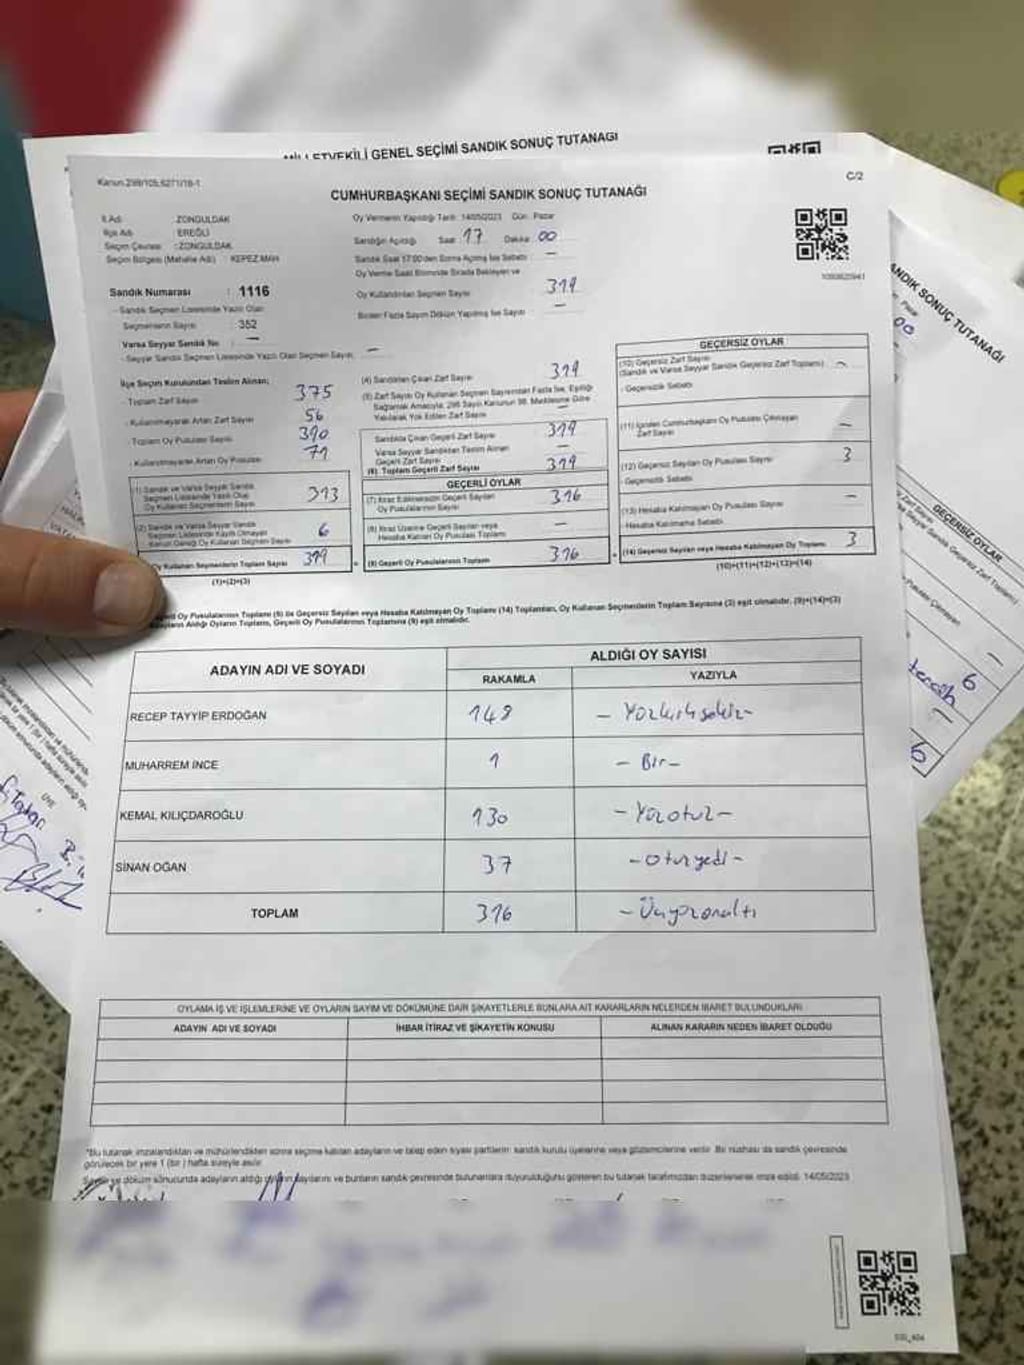 MİLLETVEKİLİ GENEL SEÇİMİ SANDIK SONUÇ TUTANAĞI
Kanun:298/105,6271/18-1
C/2
CUMHURBAŞKANI SEÇİMİ SANDIK SONUÇ TUTANAĞI
İl Adı : ZONGULDAK
İlçe Adı : EREĞLİ
Seçim Çevresi : ZONGULDAK
Seçim Bölgesi (Mahalle Adı) : KEPEZ MAH
Oy Vermenin Yapıldığı Tarih: 14/05/2023 Gün: Pazar
Sandığın Açıldığı Saat 17 Dakika 00
Sandık Saat 17:00'den Sonra Açılmış İse Sebebi —
Oy Verme Saati Bitiminde Sırada Bekleyen ve
Oy Kullandırılan Seçmen Sayısı 319
Birden Fazla Sayım Döküm Yapılmış İse Sayısı —
Sandık Numarası : 1116
- Sandık Seçmen Listesinde Yazılı Olan
Seçmenlerin Sayısı : 352
Varsa Seyyar Sandık No : —
- Seyyar Sandık Seçmen Listesinde Yazılı Olan Seçmen Sayısı: —
İlçe Seçim Kurulundan Teslim Alınan;
- Toplam Zarf Sayısı 375
- Kullanılmayarak Artan Zarf Sayısı 56
- Toplam Oy Pusulası Sayısı 390
- Kullanılmayarak Artan Oy Pusulası 71
(1) Sandık ve Varsa Seyyar Sandık
Seçmen Listesinde Yazılı Olup
Oy Kullanan Seçmenlerin Sayısı 313
(2) Sandık ve Varsa Seyyar Sandık
Seçmen Listesinde Kayıtlı Olmayan
Kanun Gereği Oy Kullanan Seçmen Sayısı 6
Oy Kullanan Seçmenlerin Toplam Sayısı 319
(1)+(2)=(3)
(4) Sandıktan Çıkan Zarf Sayısı 319
(5) Zarf Sayısı Oy Kullanan Seçmen Sayısından Fazla İse, Eşitliği
Sağlamak Amacıyla, 298 Sayılı Kanunun 98. Maddesine Göre
Yakılarak Yok Edilen Zarf Sayısı —
Sandıkta Çıkan Geçerli Zarf Sayısı 319
Varsa Seyyar Sandıktan Teslim Alınan
Geçerli Zarf Sayısı —
(6) Toplam Geçerli Zarf Sayısı 319
GEÇERLİ OYLAR
(7) İtiraz Edilmeksizin Geçerli Sayılan
Oy Pusulalarının Sayısı 316
(8) İtiraz Üzerine Geçerli Sayılan veya
Hesaba Katılan Oy Pusulası Toplamı —
(9) Geçerli Oy Pusulalarının Toplamı 316
GEÇERSİZ OYLAR
(10) Geçersiz Zarf Sayısı
(Sandık ve Varsa Seyyar Sandık Geçersiz Zarf Toplamı) —
- Geçersizlik Sebebi
(11) İçinden Cumhurbaşkanı Oy Pusulası Çıkmayan
Zarf Sayısı —
(12) Geçersiz Sayılan Oy Pusulası Sayısı 3
- Geçersizlik Sebebi
(13) Hesaba Katılmayan Oy Pusulası Sayısı —
- Hesaba Katılmama Sebebi
(14) Geçersiz Sayılan veya Hesaba Katılmayan Oy Toplamı 3
(10)+(11)+(12)+(13)=(14)
Oy Pusulalarının Toplamı (9) ile Geçersiz Sayılan veya Hesaba Katılmayan Oy Toplamı (14) Toplamları, Oy Kullanan Seçmenlerin Toplam Sayısına (3) eşit olmalıdır. (9)+(14)=(3)
Aldığı Oyların Toplamı, Geçerli Oy Pusulalarının Toplamına (9) eşit olmalıdır.
ADAYIN ADI VE SOYADI
ALDIĞI OY SAYISI
RAKAMLA YAZIYLA
RECEP TAYYİP ERDOĞAN 148 - Yüzkırksekiz -
MUHARREM İNCE 1 - Bir -
KEMAL KILIÇDAROĞLU 130 - Yüzotuz -
SİNAN OĞAN 37 - Otuzyedi -
TOPLAM 316 - Üçyüzonaltı
OYLAMA İŞ VE İŞLEMLERİNE VE OYLARIN SAYIM VE DÖKÜMÜNE DAİR ŞİKAYETLERLE BUNLARA AİT KARARLARIN NELERDEN İBARET BULUNDUKLARI
ADAYIN ADI VE SOYADI İHBAR İTİRAZ VE ŞİKAYETİN KONUSU ALINAN KARARIN NEDEN İBARET OLDUĞU
*Bu tutanak imzalandıktan ve mühürlendikten sonra seçime katılan adayların ve talep eden siyasi partilerin sandık kurulu üyelerine veya gözlemcilerine verilir. Bir nüshası da sandık çevresinde
görülecek bir yere 1 (bir) hafta süreyle asılır.
Sayım ve döküm sonucunda adayların aldığı oyların sayılarını ve bunların sandık çevresinde bulunanlara duyurulduğunu gösteren bu tutanak tarafımızdan düzenlenerek imza edildi. 14/05/2023
SANDIK SONUÇ TUTANAĞI
Pazar
00
GEÇERSİZ OYLAR
tercih 6
6
ÜYE